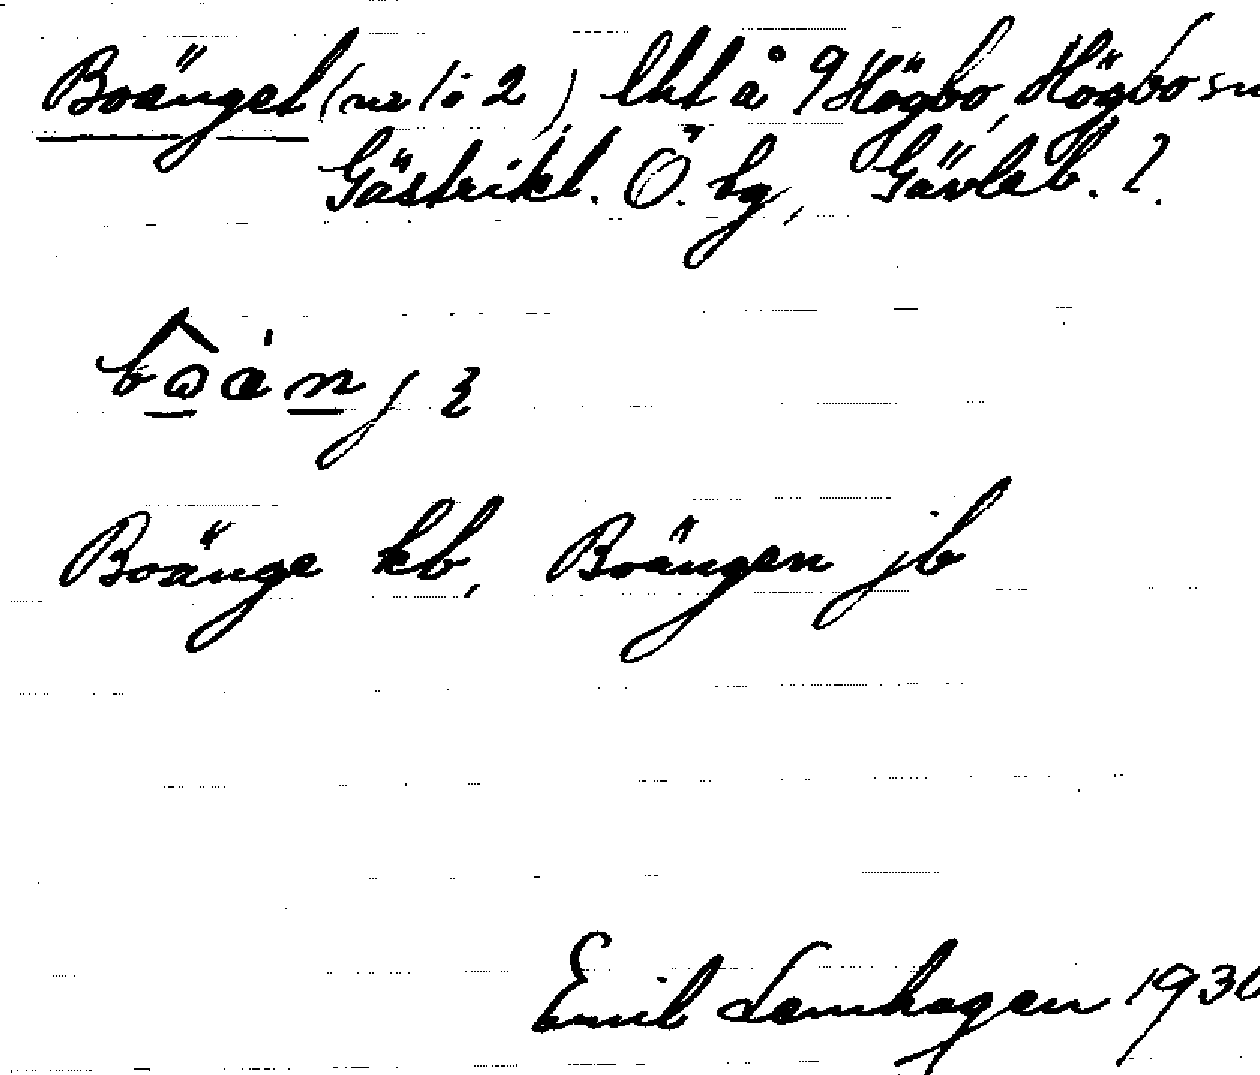 Boänget (nr 1 o 2) lht å 9 Högbo, Högbo sn
Gästrikl. Ö. hg, Gävleb. l.
Boänge kb, Boängen jb
Emil Lemhagen 1930